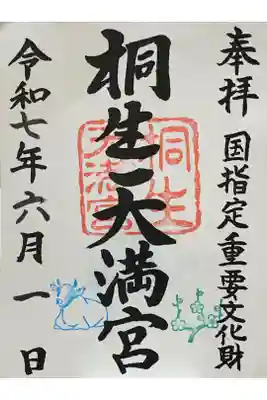 奉拝 国指定重要文化財
桐生天満宮
桐生
令和七年六月一日